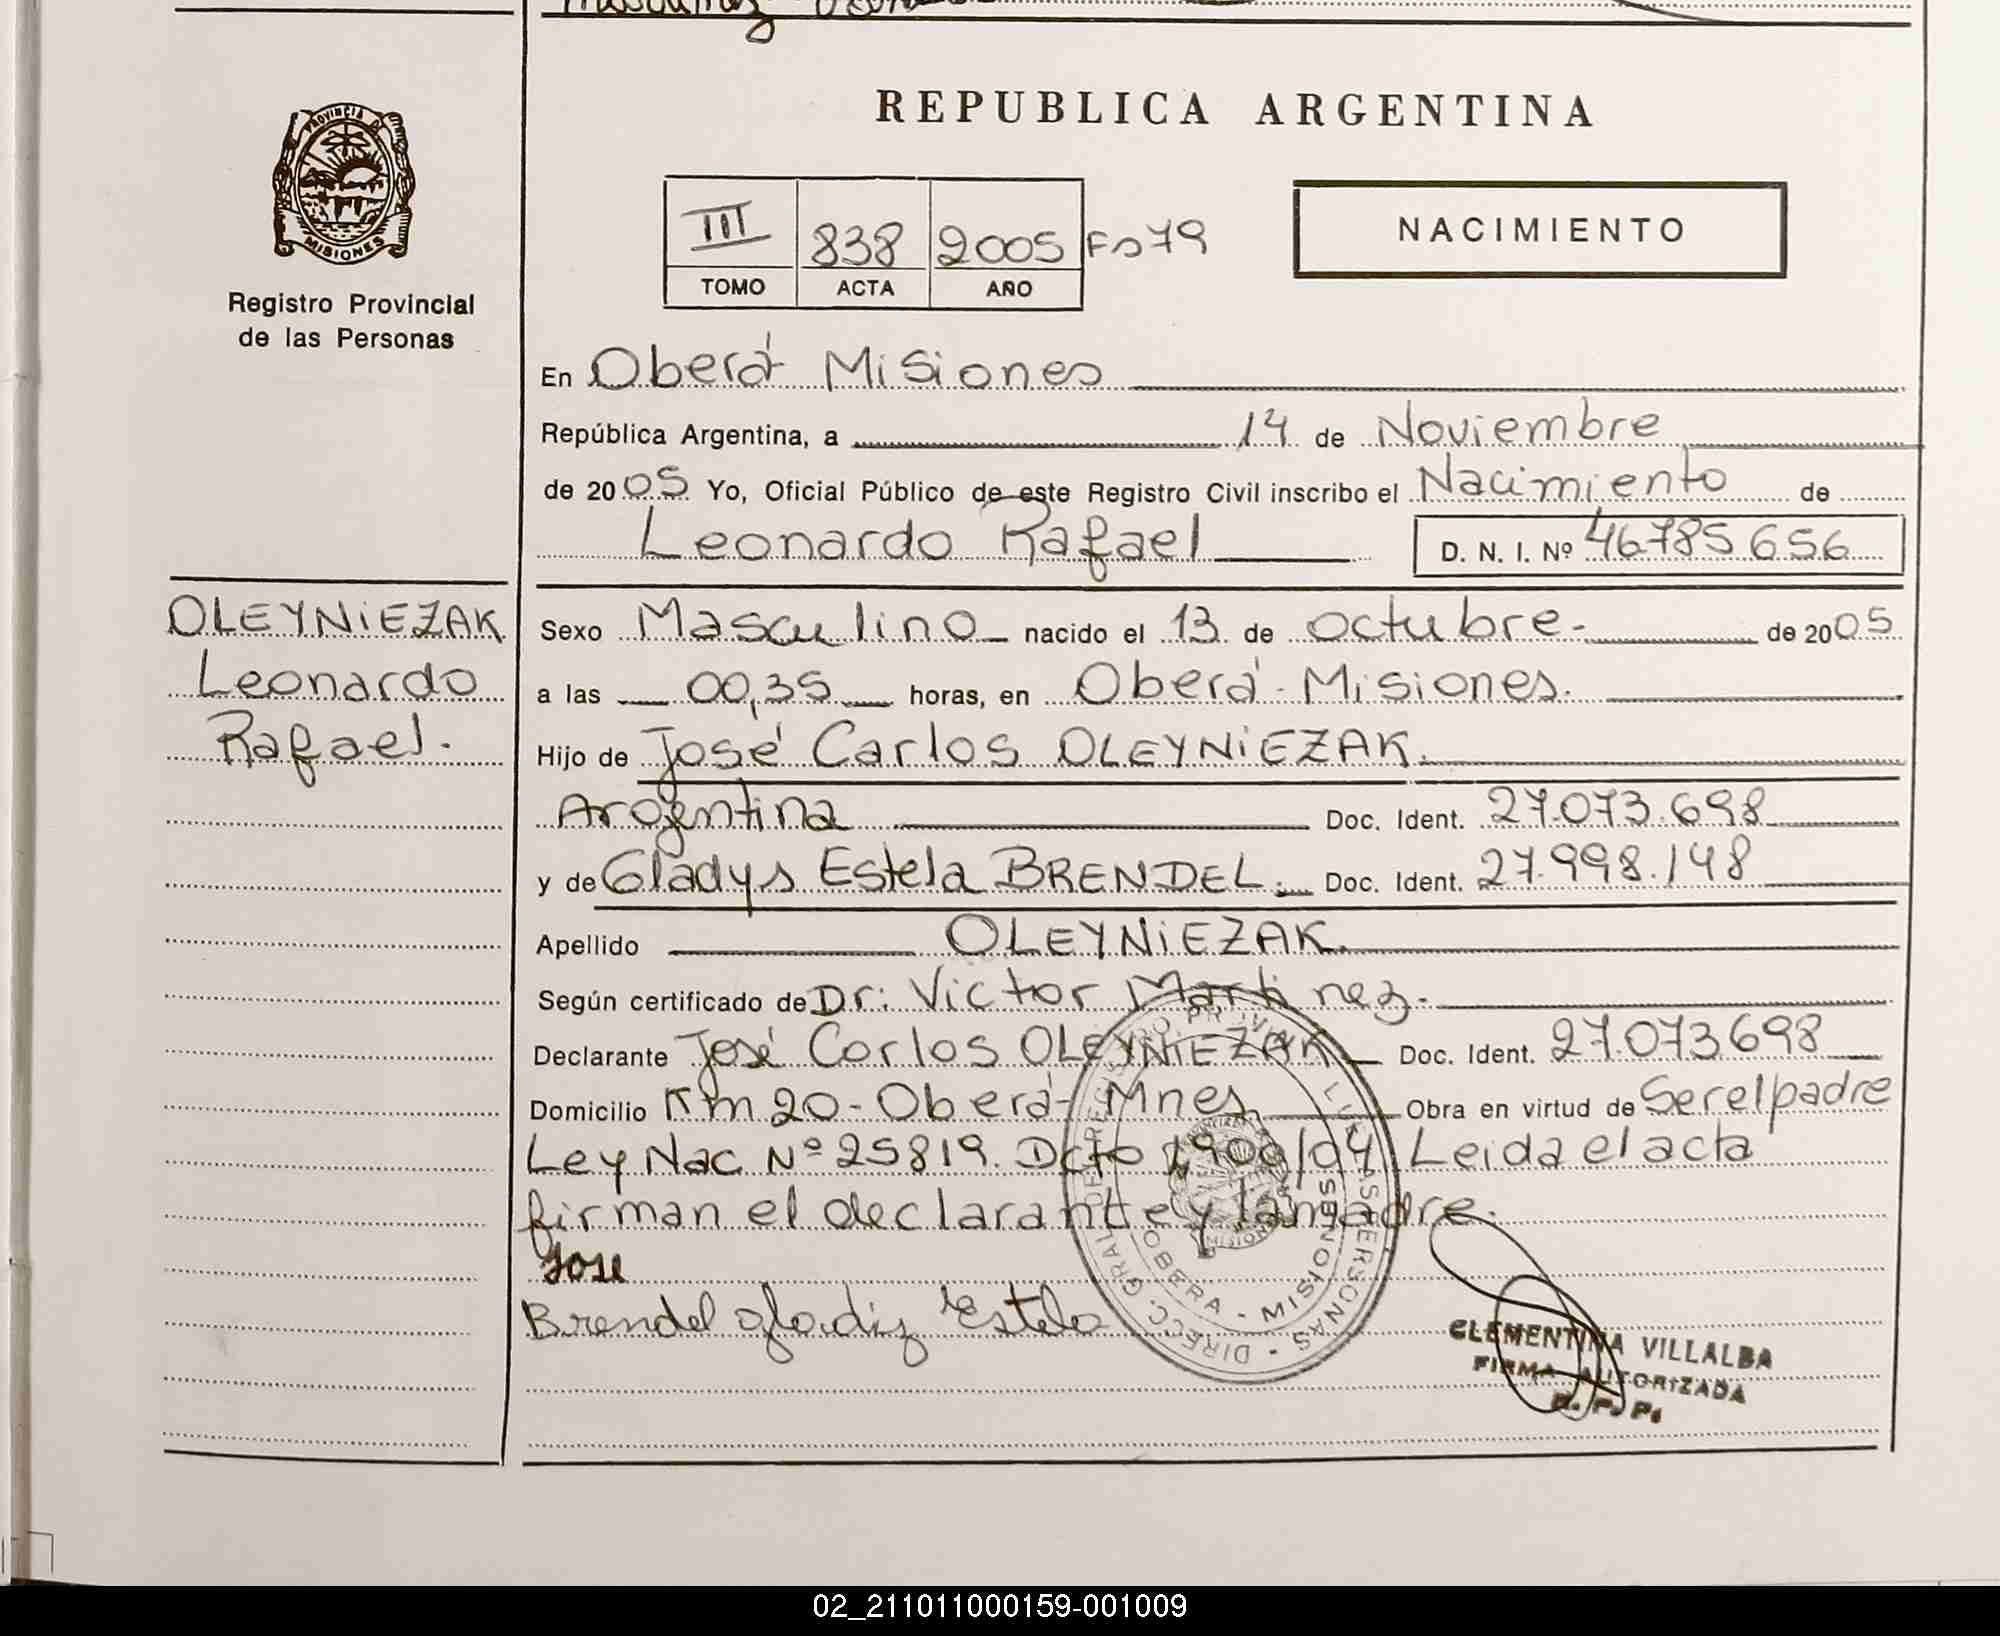 REPUBLICA ARGENTINA
PROVINCIA D
MISIONES
Registro Provincial
de las Personas
III 838 2005 Fo 79
TOMO ACTA AÑO
NACIMIENTO
En Oberá Misiones
República Argentina, a 14 de Noviembre
de 2005 Yo, Oficial Público de este Registro Civil inscribo el Nacimiento de
Leonardo Rafael D. N. I. Nº 46785656
OLEYNiEZAK
Leonardo
Rafael.
Sexo Masculino nacido el 13 de octubre- de 2005
a las 00,35 horas, en Oberá - Misiones.
Hijo de José Carlos OLEYNiEZAK.
Argentina Doc. Ident. 27.073.698
y de Gladys Estela BRENDEL. Doc. Ident. 27.998.148
Apellido OLEYNiEZAK.
Según certificado de Dr: Victor Martinez.
Declarante José Carlos OLEYNIEZAK Doc. Ident. 27.073.698
Domicilio Km 20 - Oberá - Mnes Obra en virtud de Ser el padre
Ley Nac Nº 25819. Dcto 1900/04 Leida el acta
firman el declarante y la madre.
Jose
Brendel gladiz Estela
OBERA - MISIONES
CLEMENTINA VILLALBA
FIRMA AUTORIZADA
R. P. P.
02_211011000159-001009